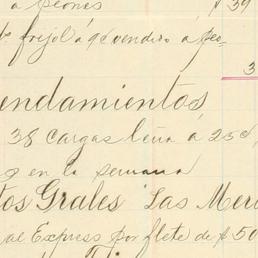 a Peones $ 39
frijol á qe vendiro a Peo-
3
endamientos
38 Cargas leña á 25¢,
en la semana
tos Grales "Las Mer
al Express por flete de $ 50